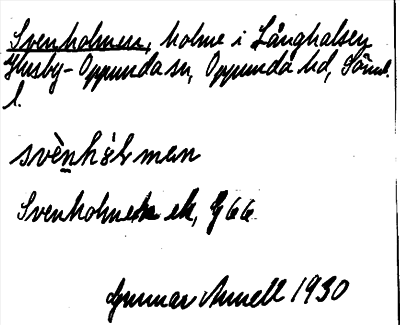 Svenholmen, holme i Långhalsen
Husby-Oppunda sn, Oppunda hd, Söml.
l.
svènhȯl men
Svenholmen ek, G 66
Gunnar Annell 1930